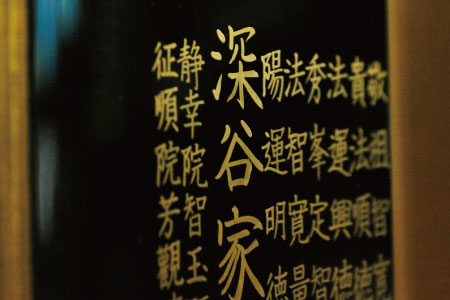 敬祖智
貴法順徳
法運興徳
秀峯定智
法智寛量
陽運明徳
深谷家
静幸院智玉
征順院芳観